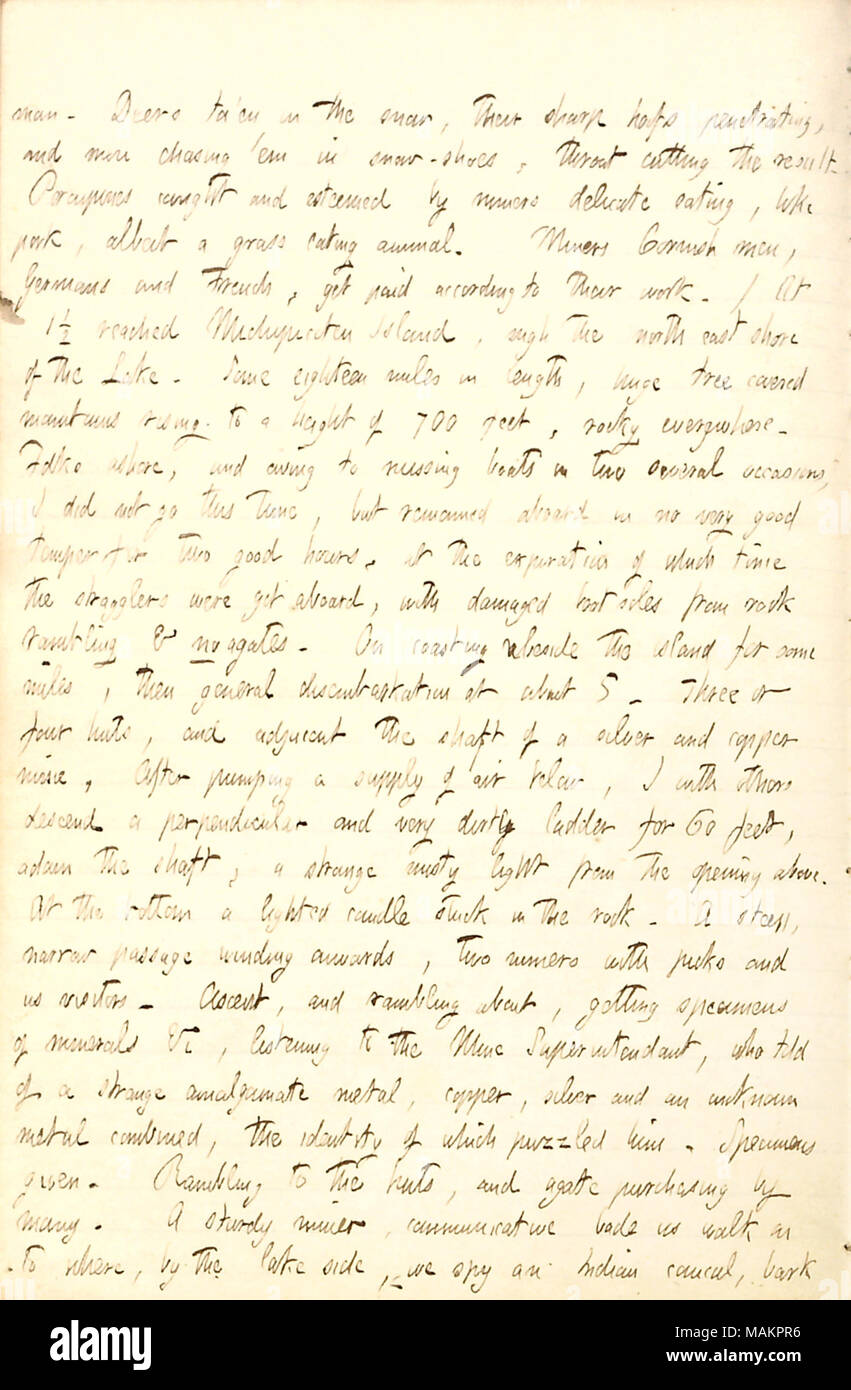 man. Deers ta'en in the snow, their sharp hofs penetrating,
and men chasing 'em in snow-shoes, throat cutting the result.
Porcupines caught and esteemed by miners delicate eating, like
pork, albeit a grass eating animal. Miners Cornish men,
Germans and French, get paid according to their work. / At
1½ reached Michipicoten Island, nigh the north east shore
of the Lake. Some eighteen miles in length, huge tree covered
mountains rising to a height of 700 feet, rocky everywhere.
Folks ashore, and owing to missing boats on two several occasions,
I did not go this time, but remained aboard in no very good
temper for two good hours, at the expiration of which time
the stragglers were got aboard, with damaged boot soles from rock
rambling & no agates. On coasting abeside the island for some
miles, then general disembarkation at about 5. Three or
four huts, and adjacent the shaft of a silver and copper
mine. After pumping a supply of air below, I with others
descend a perpendicular and very dirty ladder for 60 feet,
adown the shaft, a strange misty light from the opening above.
At the bottom a lighted candle stuck in the rock. A steep,
narrow passage winding onwards, two miners with picks and
us visitors. Ascent, and rambling about, getting specimens
of minerals &c, listening to the Mine Superintendant, who told
of a strange amalgamate metal, copper, silver and an unknown
metal combined, the identity of which puzzled him. Specimens
given. Rambling to the huts, and agate purchasing by
many. A sturdy miner, communicative bade us walk on
to where, by the lake side, we spy an Indian canoe, bark
alamy
Image ID: MAKPR6
www.alamy.com